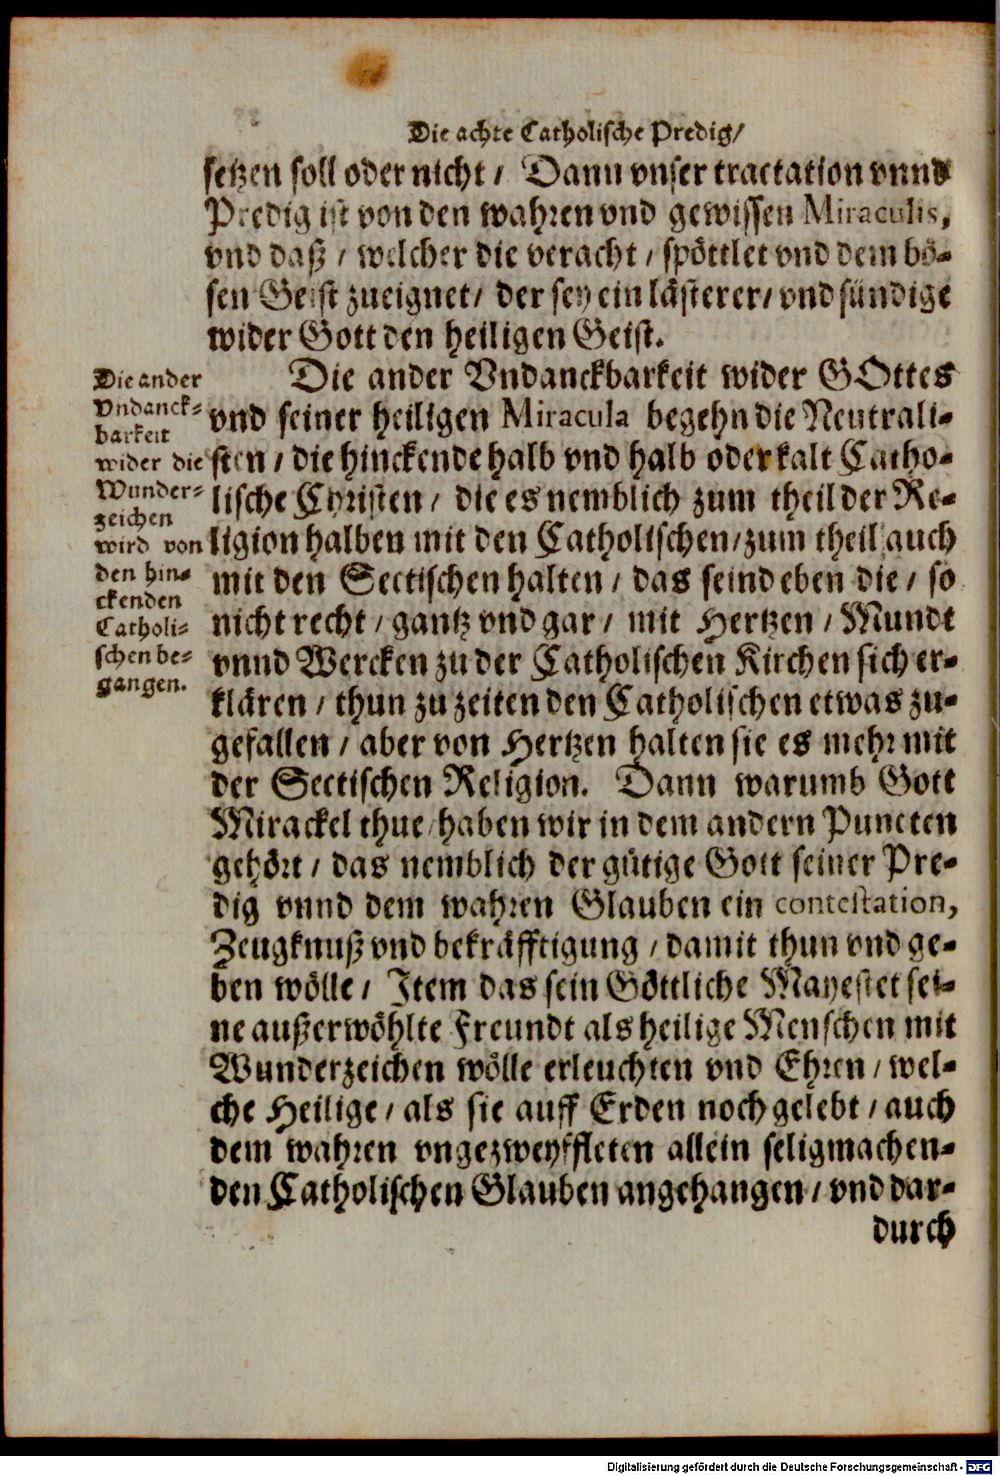 Die achte Catholische Predig/
setzen soll oder nicht / Dann vnser tractation vnnd
Predig ist von den wahren vnd gewissen Miraculis,
vnd daß / welcher die veracht / spöttlet vnd dem bö-
sen Geist zueignet / der sey ein lästerer / vnd sündige
wider Gott den heiligen Geist.
Die ander Vndanckbarkeit wider GOttes
vnd seiner heiligen Miracula begehn die Neutrali-
sten / die hinckende halb vnd halb oder kalt Catho-
lische Christen / die es nemblich zum theil der Re-
ligion halben mit den Catholischen / zum theil auch
mit den Sectischen halten / das seind eben die / so
nicht recht / gantz vnd gar / mit Hertzen / Mundt
vnnd Wercken zu der Catholischen Kirchen sich er-
klären / thun zu zeiten den Catholischen etwas zu-
gefallen / aber von Hertzen halten sie es mehr mit
der Sectischen Religion. Dann warumb Gott
Mirackel thue / haben wir in dem andern Puncten
gehört / das nemblich der gütige Gott seiner Pre-
dig vnnd dem wahren Glauben ein contestation,
Zeugknuß vnd bekräfftigung / damit thun vnd ge-
ben wölle / Item das sein Göttliche Mayestet sei-
ne außerwöhlte Freundt als heilige Menschen mit
Wunderzeichen wölle erleuchten vnd Ehren / wel-
che Heilige / als sie auff Erden noch gelebt / auch
dem wahren vngezweyffleten allein seligmachen-
den Catholischen Glauben angehangen / vnd dar-
durch
Die ander
Vndanck-
barkeit
wider die
Wunder-
zeichen
wird von
den hin-
ckenden
Catholi-
schen be-
gangen.
Digitalisierung gefördert durch die Deutsche Forschungsgemeinschaft - DFG